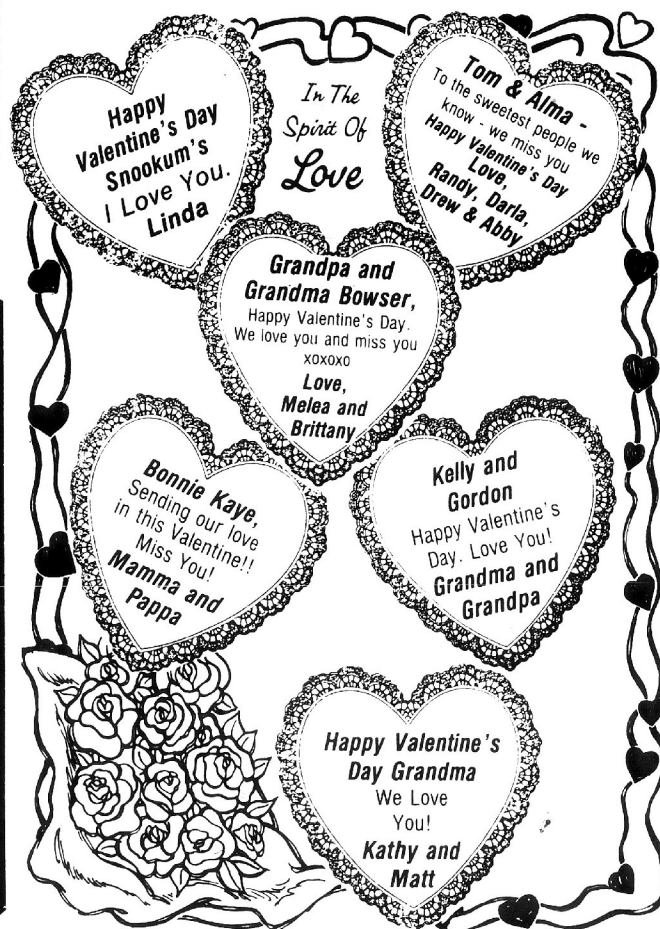 Happy
Valentine's Day
Snookum's
I Love You.
Linda
In The
Spirit Of
Love
Tom & Alma -
To the sweetest people we
know - we miss you
Happy Valentine's Day
Love,
Randy, Darla,
Drew & Abby
Grandpa and
Grandma Bowser,
Happy Valentine's Day.
We love you and miss you
xoxoxo
Love,
Melea and
Brittany
Bonnie Kaye,
Sending our love
in this Valentine!!
Miss You!
Mamma and
Pappa
Kelly and
Gordon
Happy Valentine's
Day. Love You!
Grandma and
Grandpa
Happy Valentine's
Day Grandma
We Love
You!
Kathy and
Matt